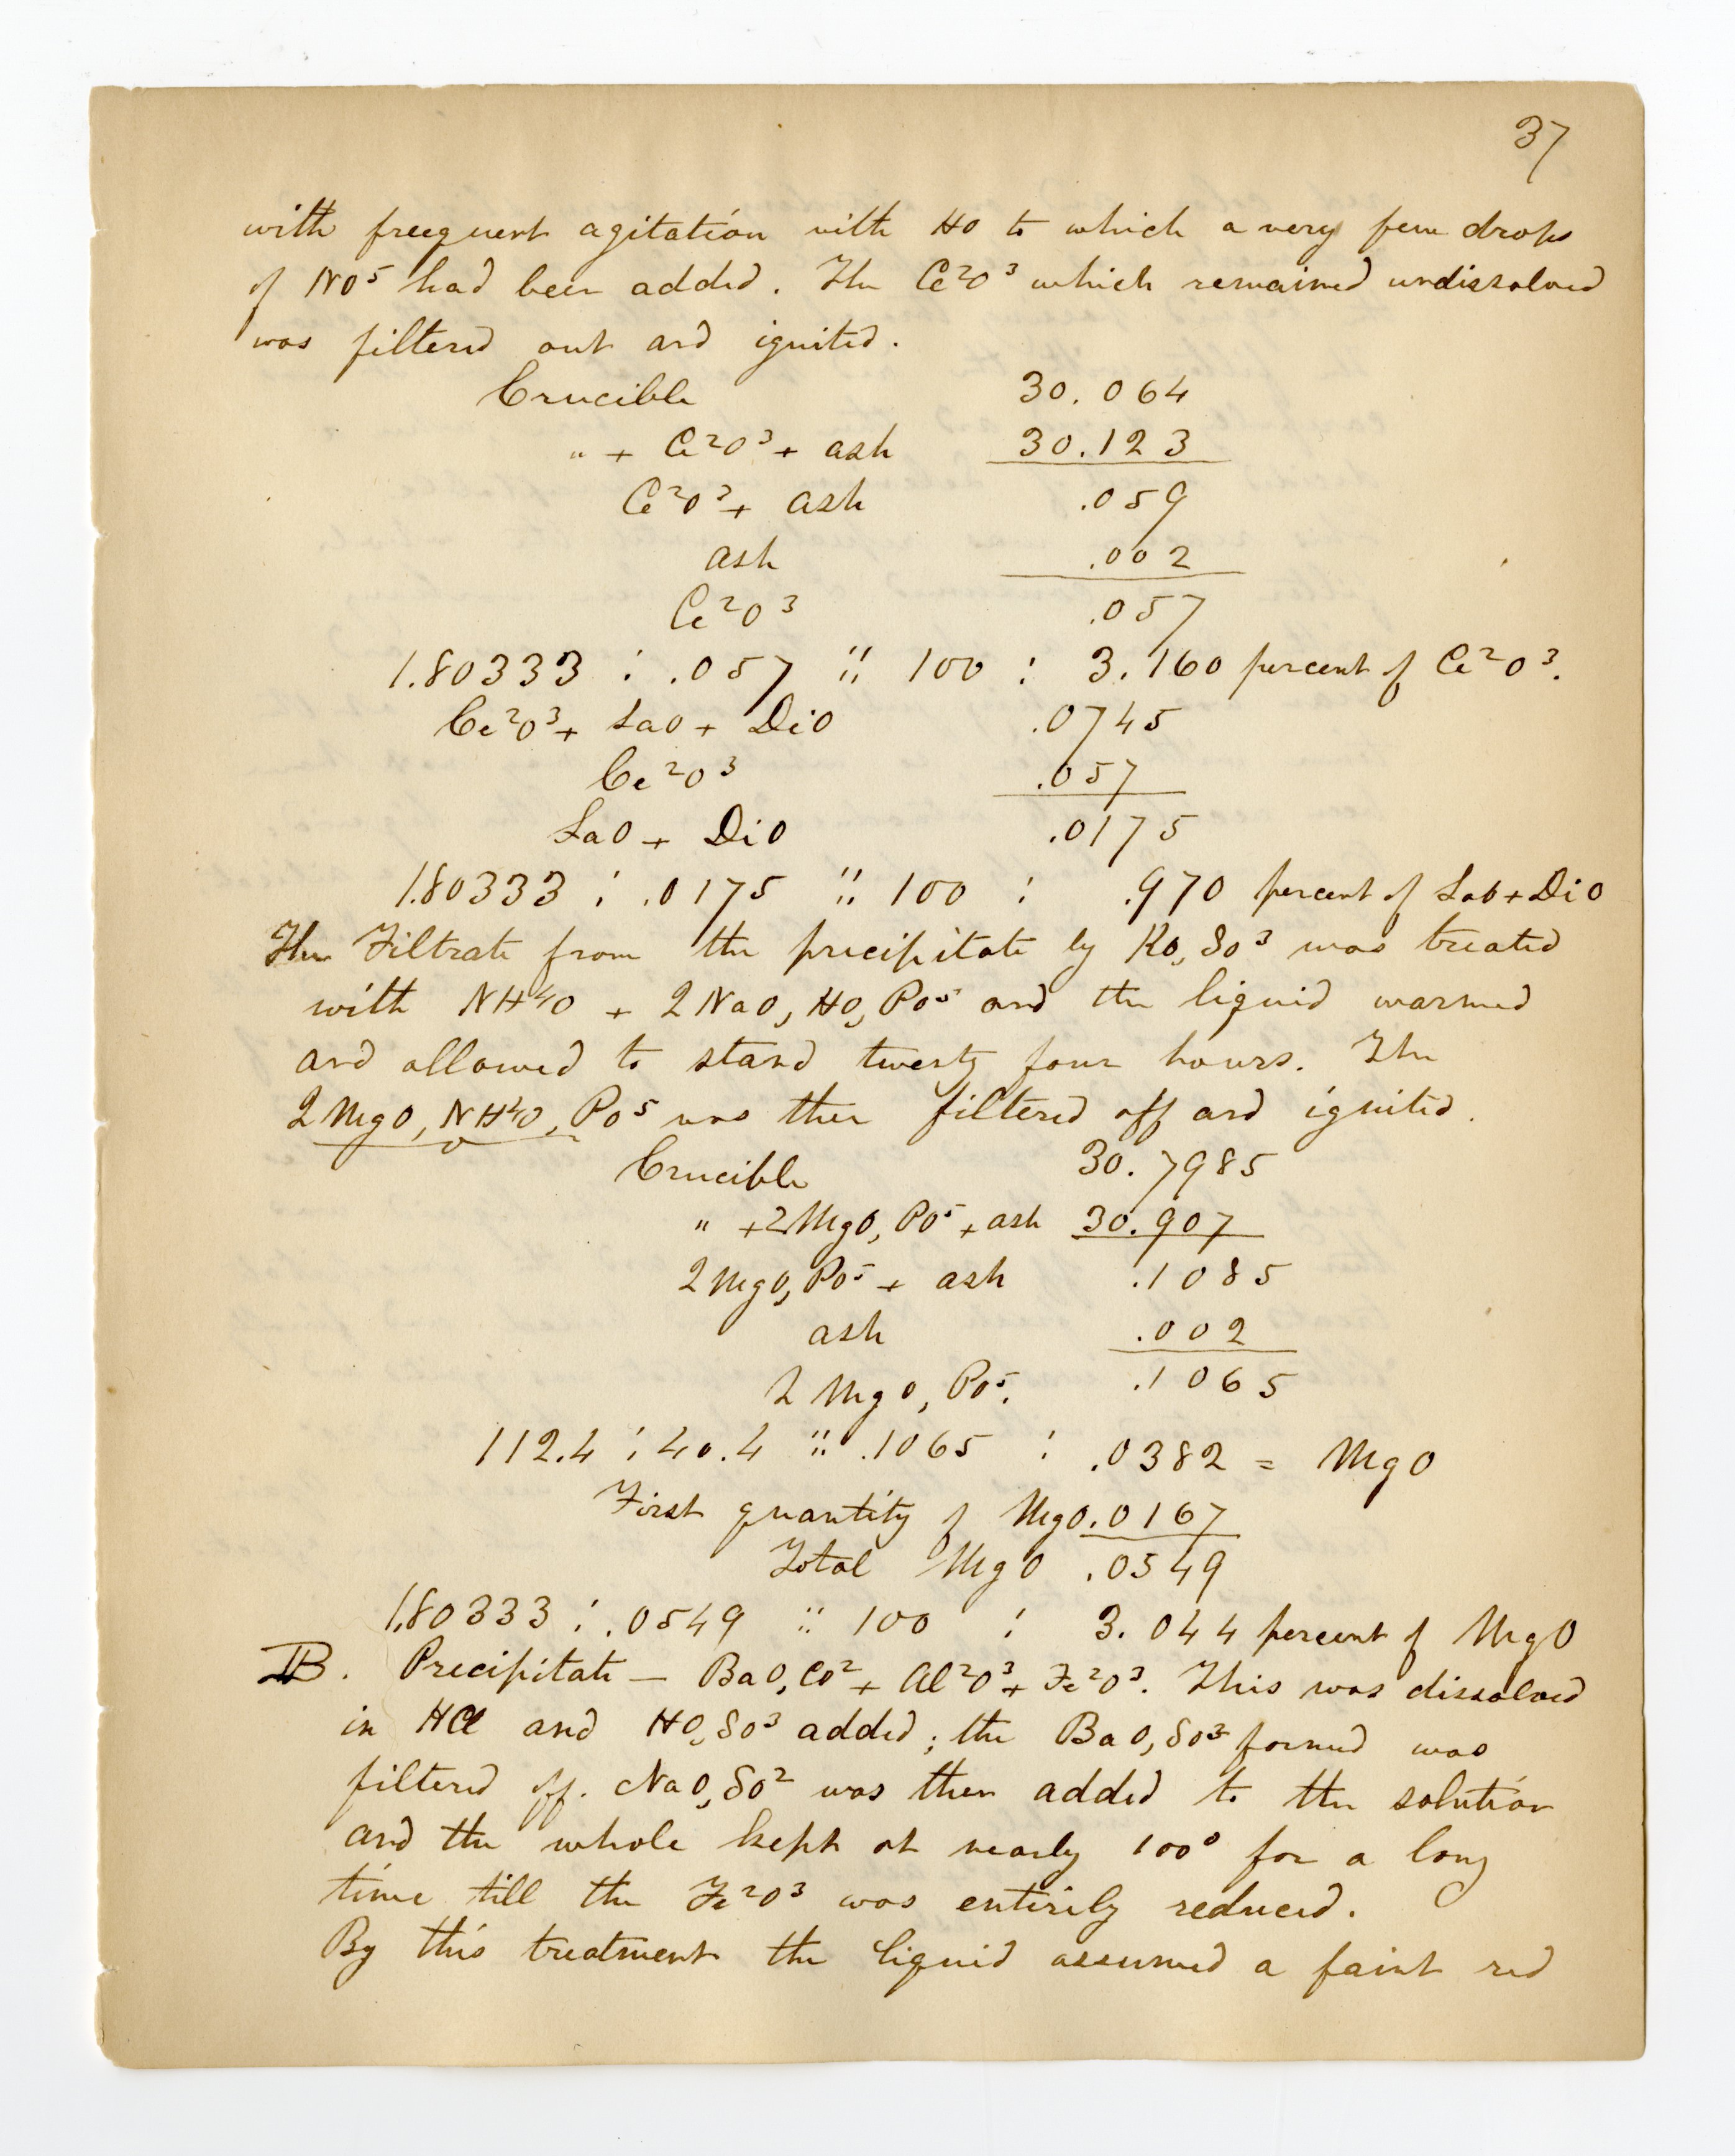 37
with freequent agitation with HO to which a very few drops
of NO⁵ had been added. The Ce²O³ which remained undissolved
was filtered out and ignited.
Crucible 30.064
" + Ce²O³ + ash 30.123
Ce²O³ + ash .059
ash .002
Ce²O³ .057
1.80333 : .057 :: 100 : 3.160 percent of Ce²O³.
Ce²O³ + LaO + DiO .0745
Ce²O³ .057
LaO + DiO .0175
1.80333 : .0175 :: 100 : .970 percent of LaO + DiO
The Filtrate from the precipitate by KO,SO³ was treated
with NH⁴O + 2NaO,HO,PO⁵ and the liquid warmed
and allowed to stand twenty four hours. The
2MgO,NH⁴O,PO⁵ was then filtered off and ignited.
Crucible 30.7985
" + 2MgO,PO⁵ + ash 30.907
2MgO,PO⁵ + ash .1085
ash .002
2MgO,PO⁵. .1065
112.4 : 40.4 :: .1065 : .0382 = MgO
First quantity of MgO .0167
Total MgO .0549
1.80333 : .0549 :: 100 : 3.044 percent of MgO
IIB. Precipitate — BaO,CO² + Al²O³ + Fe²O³. This was dissolved
in HCl and HO,SO³ added; the BaO,SO³ formed was
filtered off. NaO,SO² was then added to the solution
and the whole kept at nearly 100° for a long
time till the Fe²O³ was entirely reduced.
By this treatment the liquid assumed a faint red